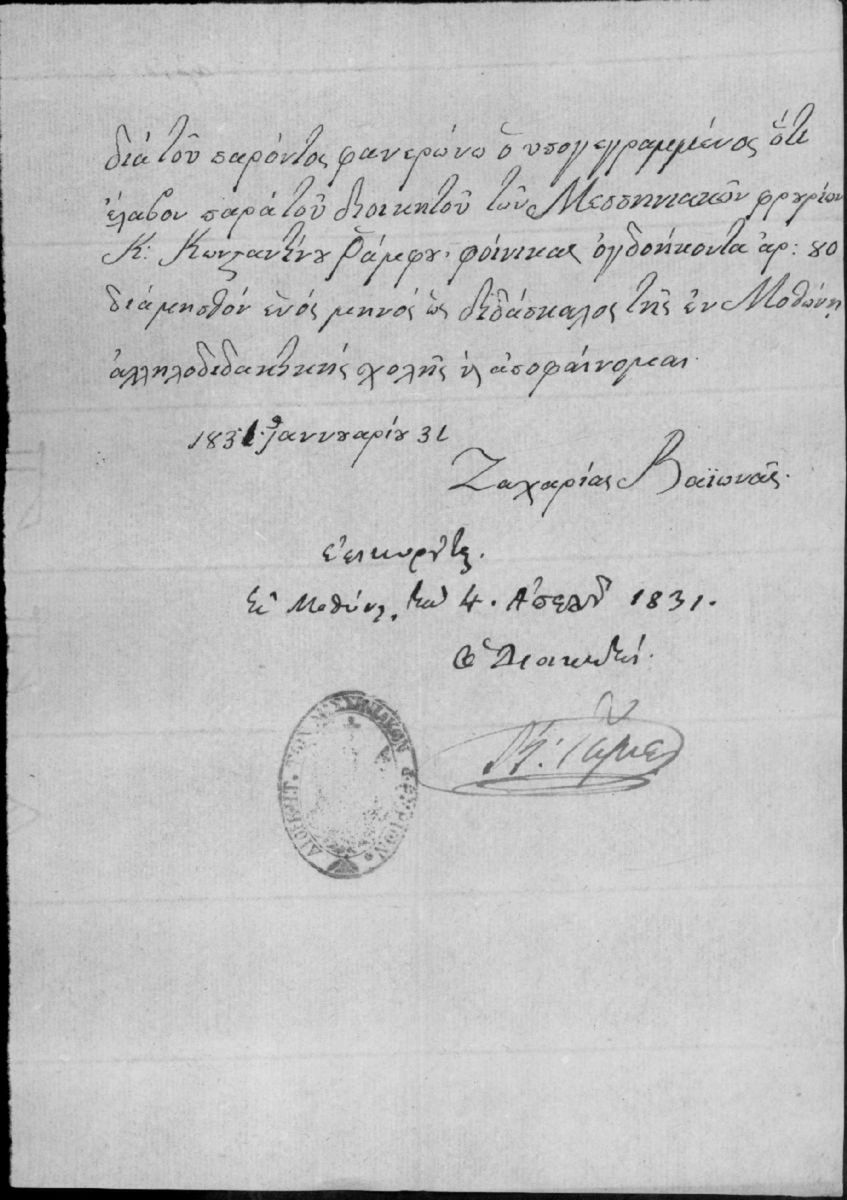 διὰ τοῦ παρόντος φανερώνω ὁ υπογεγραμμένος ὅτι
ἔλαβον παρὰ τοῦ διοικητοῦ τῶν Μεσσηνιακῶν φρουρίων
Κ: Κωνσταντίνου Ῥάμφου· φοίνικας ὀγδοήκοντα ἀρ: 80
διὰ μησθόν ἑνός μηνός ὡς διδάσκαλος τῆς ἐν Μοθώνῃ
ἀλληλοδιδακτικῆς σχολῆς ἠ ἀποφαίνομαι·
1831· Ἰαννουαρίου 31
Ζαχαρίας Βαϊωνᾶς·
Ἐπικυροῦται.
Ἐν Μοθώνῃ, τῇ 4. Ἀπριλίου 1831.
Ὁ Διοικητής.
ΔΙΟΙΚΗΤ. ΤΩΝ ΜΕΣΣΗΝΙΑΚΩΝ ΦΡΥΡΙΩΝ.